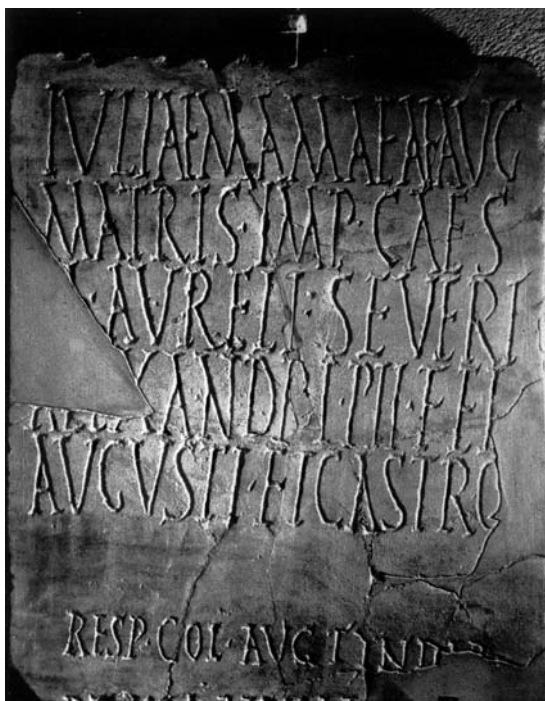 IVLIAE MAMAEAE AVG
MATRIS · IMP · CAES
· AVRELI · SEVERI
ANDRI · PII · FELI
AVGVSTI · ET CASTRO
RESP · COL · AVG T